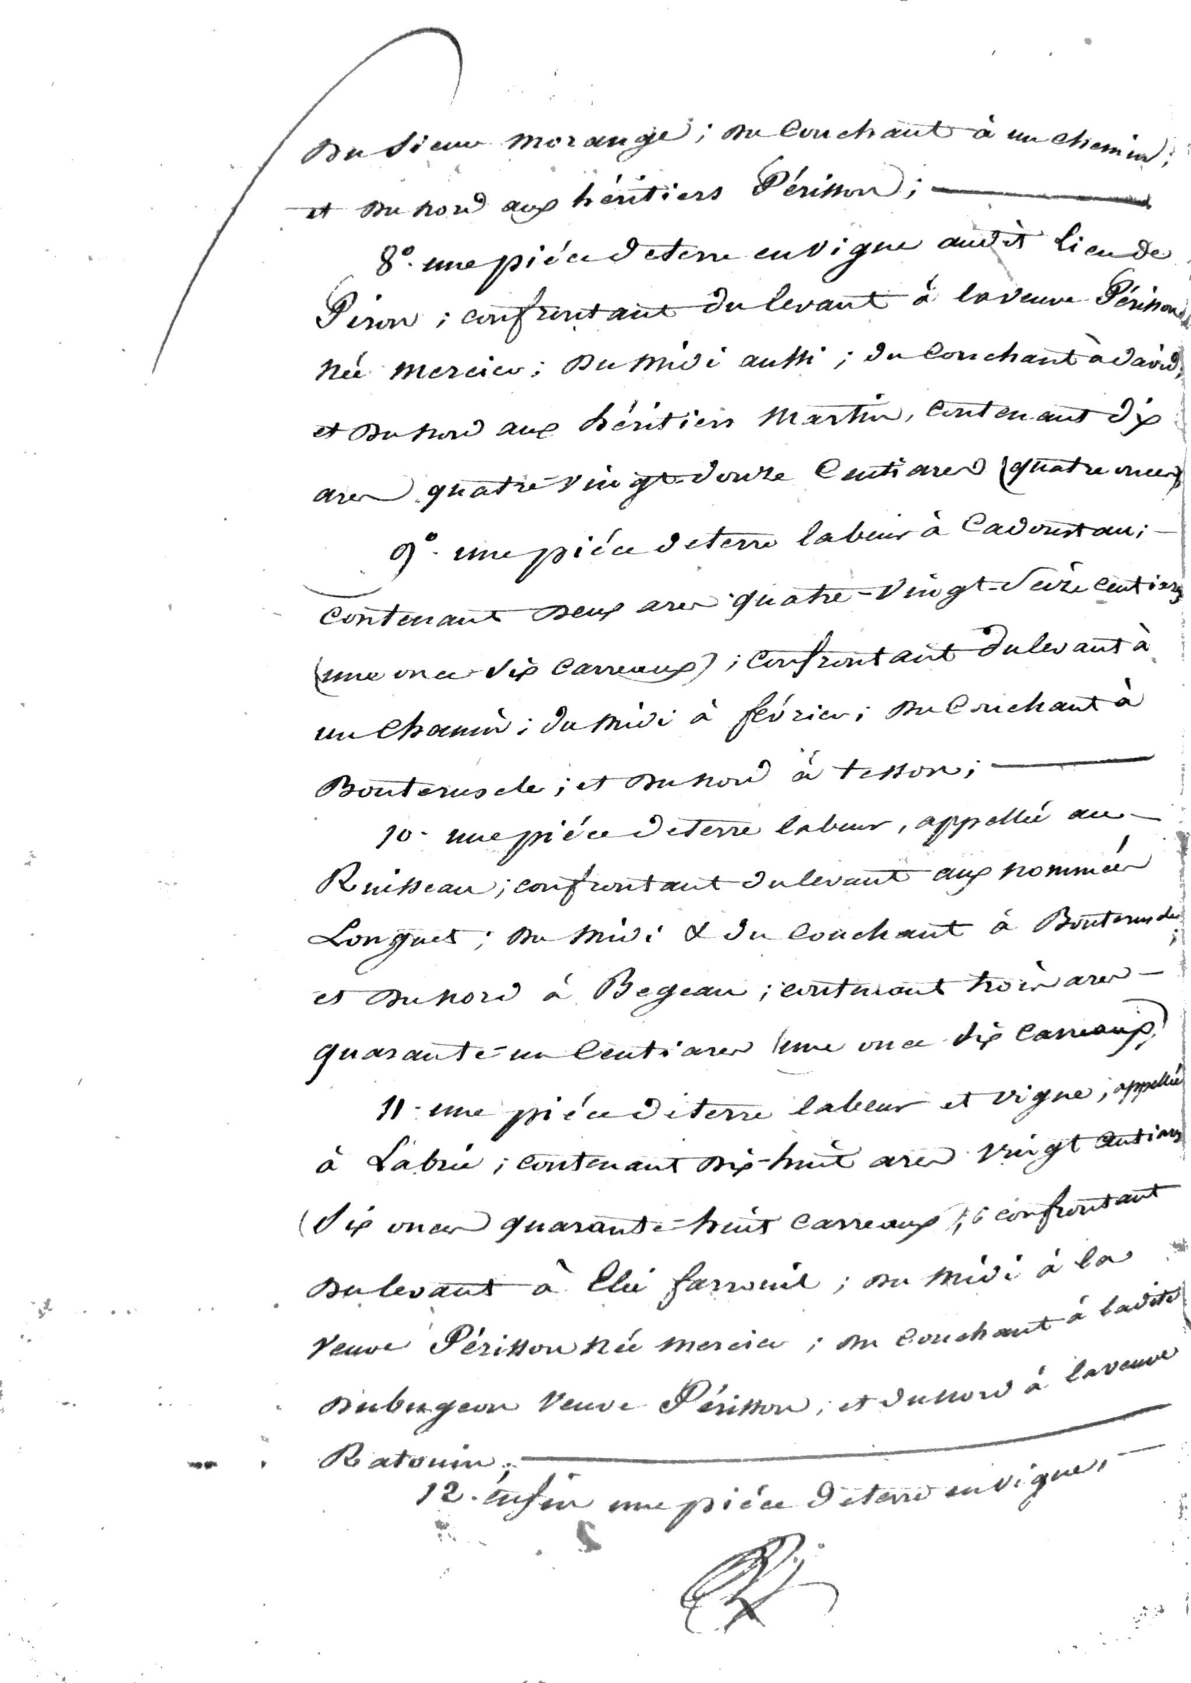 du sieur morange ; du couchant à un chemin ;
et du nord aux héritiers Périsson ;
8° une piéce de terre en vigne audit lieu de
Piron ; confrontant du levant à la veuve Périsson
née mercier ; du midi aussi ; du couchant à david,
et du nord aux héritiers martin, contenant dix
ares quatre-vingt-douze centiares (quatre onces)
9° une piéce de terre labeur à Cadoustau ;
contenant deux ares quatre-vingt-seize centiares
(une once dix carreaux) ; confrontant du levant à
un chemin ; du midi à février ; du couchant à
Bouterusde ; et du nord à tesson ;
10 une piéce de terre labeur, appellée au
Ruisseau ; confrontant du levant aux nommées
Longuet ; du midi & du couchant à Bouterusde
et du nord à Begeau ; contenant trois ares
quarante-un centiares (une once dix carreaux)
11 une piéce de terre labeur et vigne, appellée
à Labrie ; contenant dix-huit ares vingt centiares
(six onces quarante-huit carreaux) ; confrontant
du levant à Elie farrouil ; du midi à la
veuve Périsson née mercier ; du couchant à ladite
dubugeon veuve Périsson ; et du nord à la veuve
Ratouin ;
12. enfin une piéce de terre en vigne,